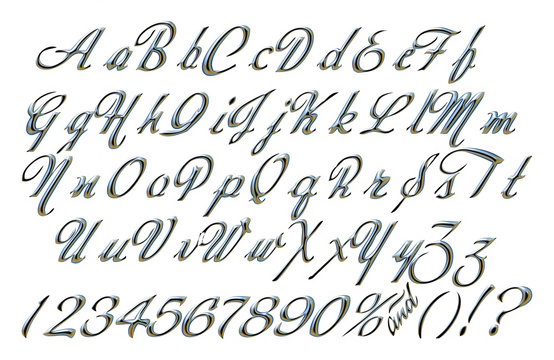 A a B b C c D d E e F f
G g H h I i J j K k L l M m
N n O o P p Q q R r S s T t
U u V v W w X x Y y Z z
1 2 3 4 5 6 7 8 9 0 % and ( ) ! ?